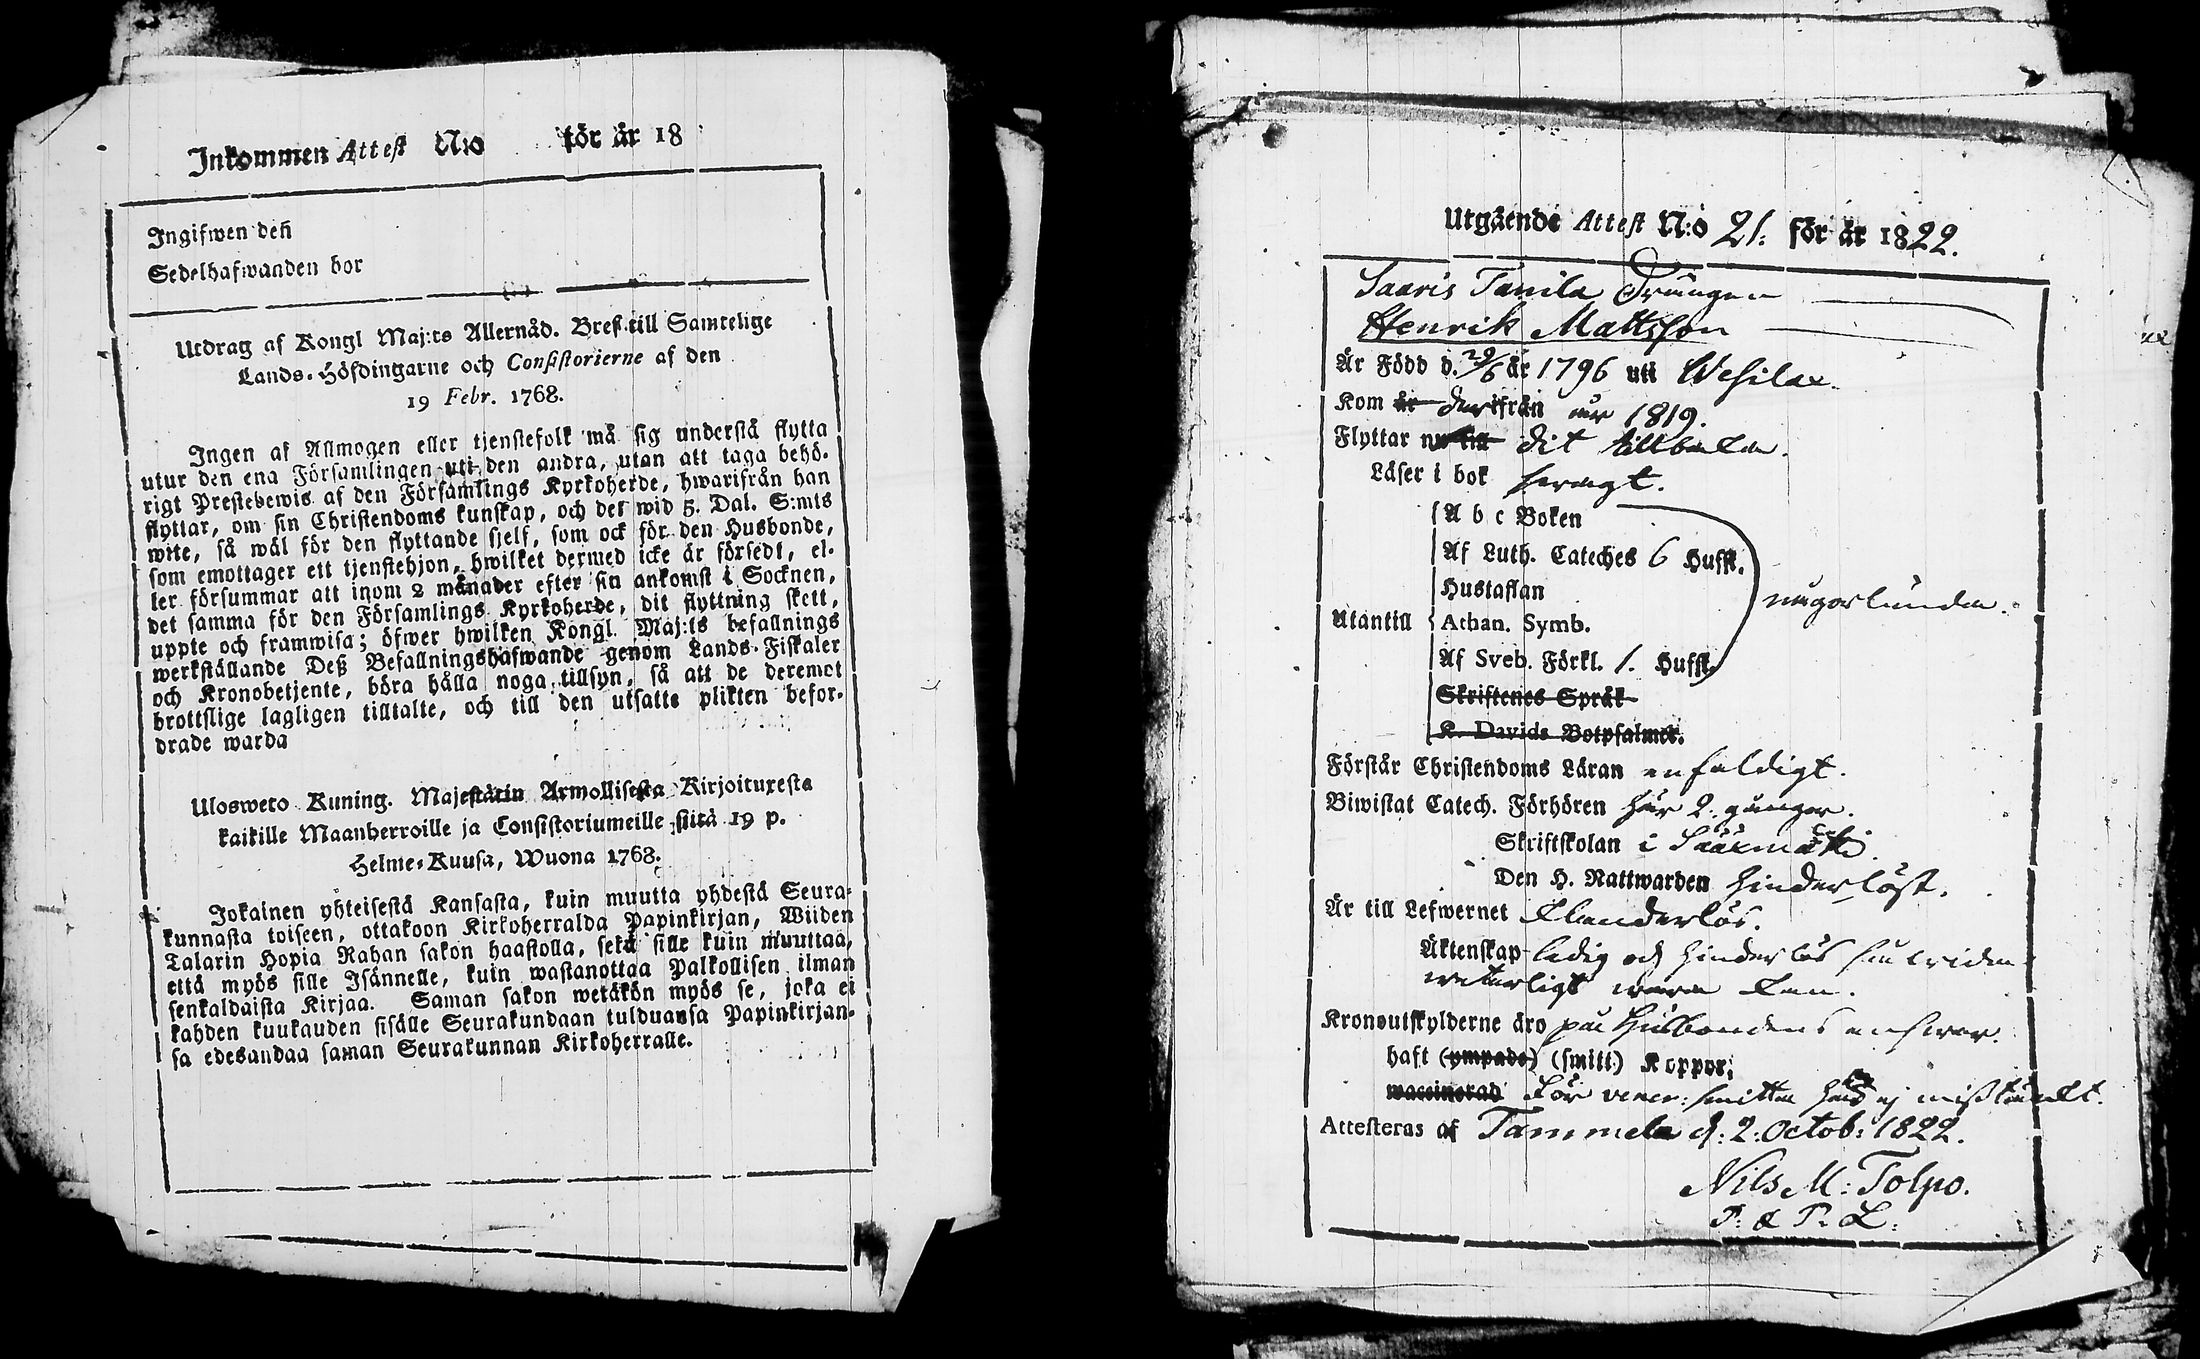 Inkommen Attest N:o för år 18
Ingifwen deñ
Sedelhafwanden bor
Utdrag af Kongl Maj:ts Allernåd. Bref till Samtelige
Lands-Höfdingarne och Consistorierne af den
19 Febr. 1768.
Ingen af Allmogen eller tjenstefolk må sig understå flytta
utur den ena Församlingen uti den andra, utan att taga behö-
rigt Prestebewis af den Församlings Kyrkoherde, hwarifrån han
flyttar, om sin Christendoms kunskap, och det wid 5. Dal. S:mts
wite, så wäl för den flyttande sjelf, som ock för den Husbonde,
som emottager ett tjenstehjon, hwilket dermed icke är försedt, el-
ler försummar att inom 2 månader efter sin ankomst i Socknen,
det samma för den Församlings Kyrkoherde, dit flyttning skett,
uppte och framwisa; öfwer hwilken Kongl. Maj:ts befallnings
werkställande Deß Befallningshafwande genom Lands-Fiskaler
och Kronobetjente, böra hålla noga tillsyn, så att de deremot
brottslige lagligen tilltalte, och till den utsatte plikten befor-
drade warda
Ulosweto Kuning. Majestätin Armollisesta Kirjoituxesta
kaikille Maanherroille ja Consistoriumeille siitä 19 p.
Helme-Kuusa, Wuona 1768.
Jokainen yhteisestä Kansasta, kuin muutta yhdestä Seura-
kunnasta toiseen, ottakoon Kirkoherralda Papinkirjan, Wiiden
Talarin Hopia Rahan sakon haastolla, sekä sille kuin muuttaa,
että myös sille Isännelle, kuin wastanottaa Palkollisen ilman
senkaldaista Kirjaa. Saman sakon wetäkön myös se, joka ei
kahden kuukauden sisälle Seurakundaan tulduansa Papinkirjan-
sa edesandaa saman Seurakunnan Kirkoherralle.
Utgående Attest N:o 21. för år 1822.
Saaris Tanila Drängen
Henrik Mattsson
Är Född d. 29/6 år 1796 uti Wesilax
Kom år derifrån år 1819.
Flyttar nu till dit tillbaka.
Läser i bok swagt.
A b c Boken
Af Luth. Cateches 6 Hufst.
Hustaflan
någorlunda.
Utantill Athan. Symb.
Af Sveb. Förkl. 1. Hufst.
Skriftenes Språk
K. Davids Botpsalmer.
Förstår Christendoms Läran enfaldigt.
Biwistat Catech. Förhören här 2. gånger.
Skriftskolan i Sääxmäki
Den H. Nattwarden hinderlöst.
Är till Lefwernet klanderlös.
Äktenskap ledig och hinderlös
weterligt
Kronoutskylderne äro på Husbondens answar.
haft (ympade) (smitt.) Koppor,
waccinerad För vener: smitta ej mißtänkt.
Attesteras af Tammela d: 2. Octob: 1822.
Nils M: Tolpo.
P: & P: L: